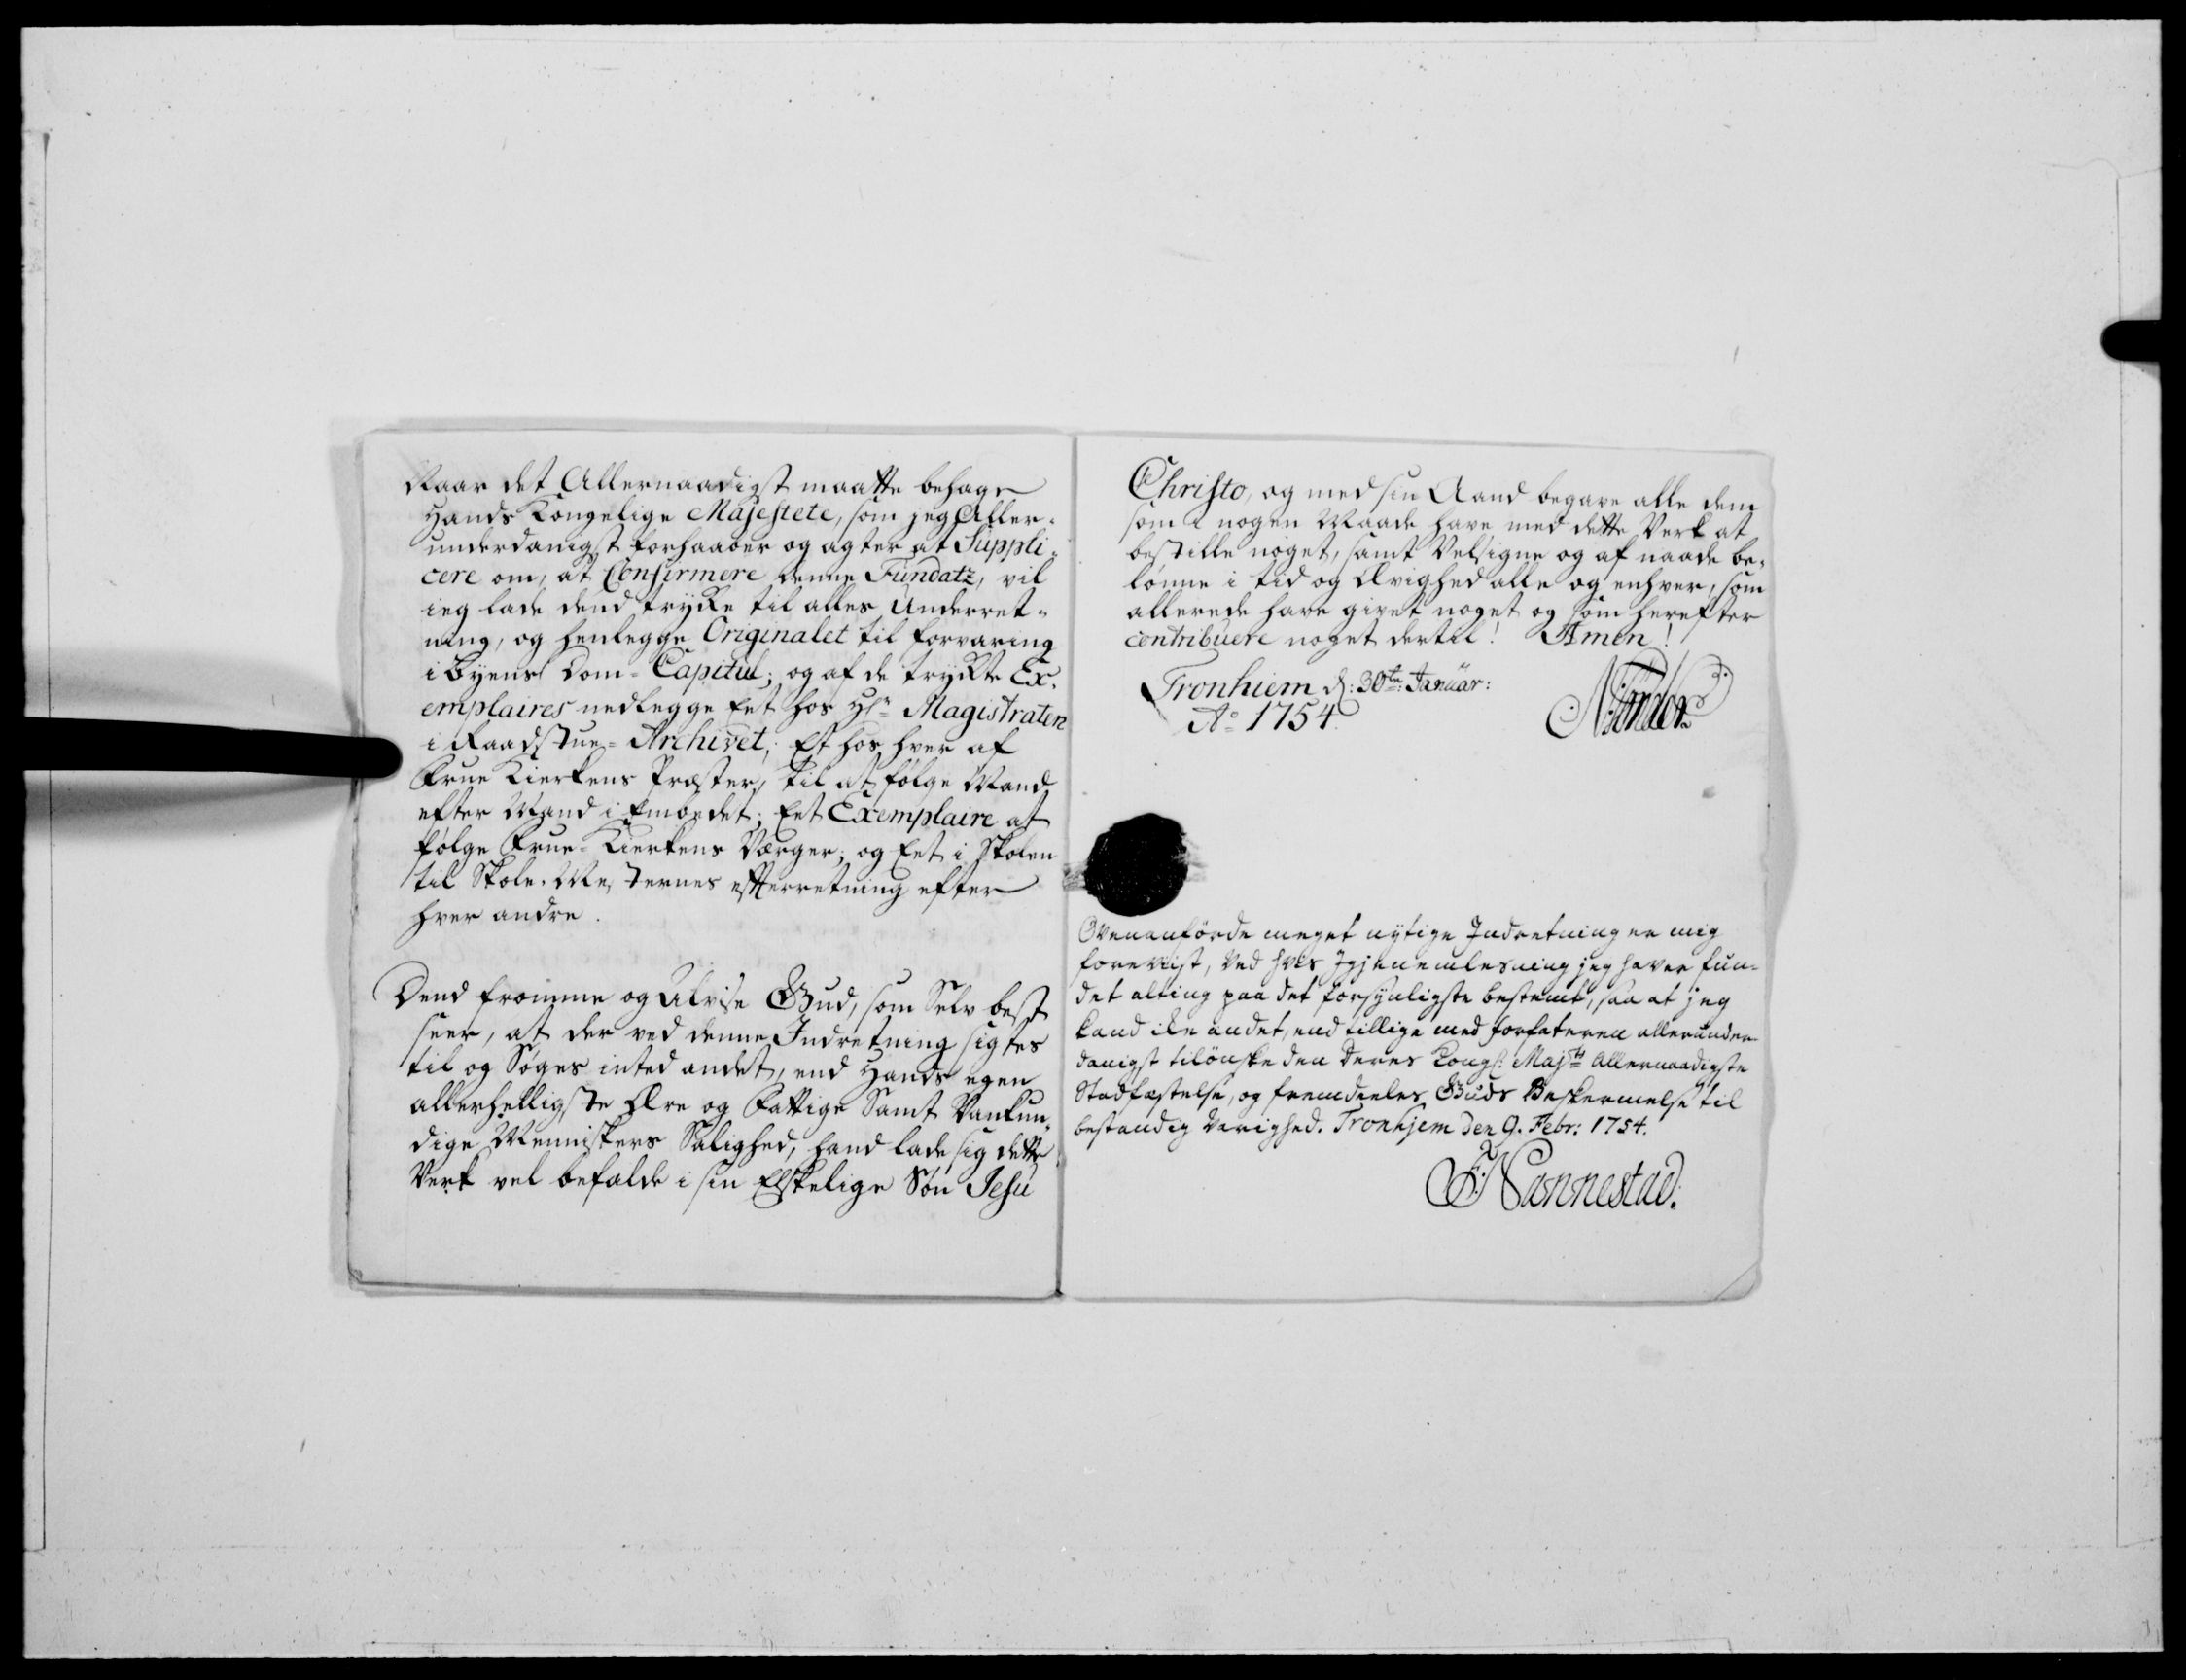 Naar det Allernaadigst maatte behage
Hands Kongelige Majestete, som jeg Aller-
underdanigst forhaaber og agter at Suppli-
cere om, at Confirmere denne Fundatz, vil
ieg lade dend trykke til alles Underret-
ning, og henlegge Originalet til forvaring
i Byens Dom-Capitul; og af de trykte Ex-
emplaires nedlegge Eet hos Hr. Magistraten
i Raadstue-Archivet; Et hos hver af
Frue Kierkens Præster, til at følge Mand
efter Mand i Embedet; Eet Exemplaire at
følge Frue-Kierkens Værger; og Eet i Skolen
til Skole-Mesternes efterretning efter
hver andre.
Dend fromme og Alvise Gud, som Selv best
seer, at der ved denne Indretning sigtes
til og Søges inted andet, end Hands egen
allerhelligste Ære og Fattige Samt Vankun-
dige Menniskers Salighed, hand lade sig dette
Verk vel befalde i sin Elskelige Søn Jesu
Christo, og med sin Aand begave alle dem
som i nogen Maade have med dette Verk at
bestille noget, samt Velsigne og af naade be-
lønne i tid og Ævighed alle og enhver, som
allerede have givet noget og som herefter
contribuere noget dertil! Amen!
Tronhiem d: 30te Januar:
Ao 1754.
Ovenanførde meget nytige Indretning er mig
foreviist, ved hvis Igjenemlesning jeg haver fun-
det alting paa det forsynligste bestemt, saa at jeg
kand ike andet, end tillige med forfateren allerunder-
danigst tilønske den Deres Kongl: Majts Allernaadigste
Stadfæstelse, og fremdeeles Guds Beskermelse til
bestandig Varighed. Tronhjem den 9. Febr: 1754.
F: Nannestad.